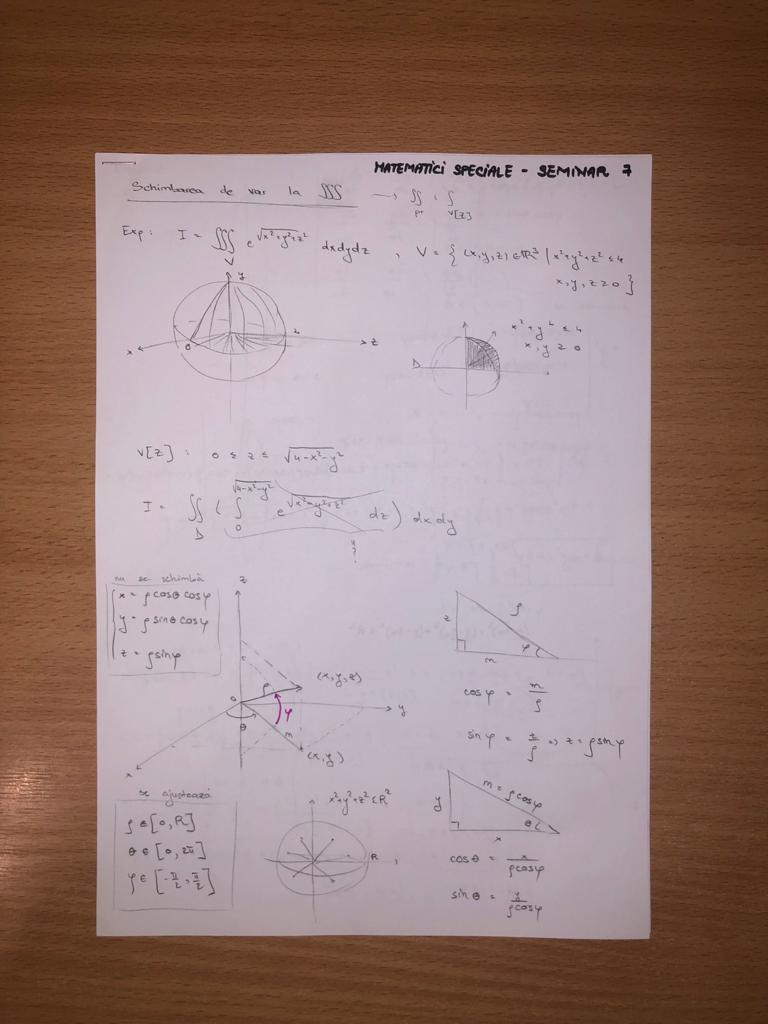 MATEMATICI SPECIALE - SEMINAR 7
Schimbarea de var la ∭ → ∬ ; ∫
pr V[z]
Exp: I = ∭ e^√(x²+y²+z²) dxdydz , V = { (x,y,z) ∈ ℝ³ | x²+y²+z² ≤ 4
V
x,y,z ≥ 0 }
y
x
0
2
z
x² + y² ≤ 4
x, y ≥ 0
D
V[z] : 0 ≤ z ≤ √(4-x²-y²)
I = ∬ ( ∫ e^√(x²+y²+z²) dz ) dx dy
√(4-x²-y²)
D 0
?
nu se schimbă
x = ρ cosθ cosφ
y = ρ sinθ cosφ
z = ρ sinφ
z
ρ
(x,y,z)
0
φ
y
θ
m
(x,y)
x
z
ρ
φ
m
cosφ = m/ρ
sinφ = z/ρ => z = ρ sinφ
se ajustează
ρ ∈ [0, R]
θ ∈ [0, 2π]
φ ∈ [-π/2, π/2]
x²+y²+z² ≤ R²
R ,
y
m = ρcosφ
θ
x
cosθ = x/ρcosφ
sinθ = y/ρcosφ